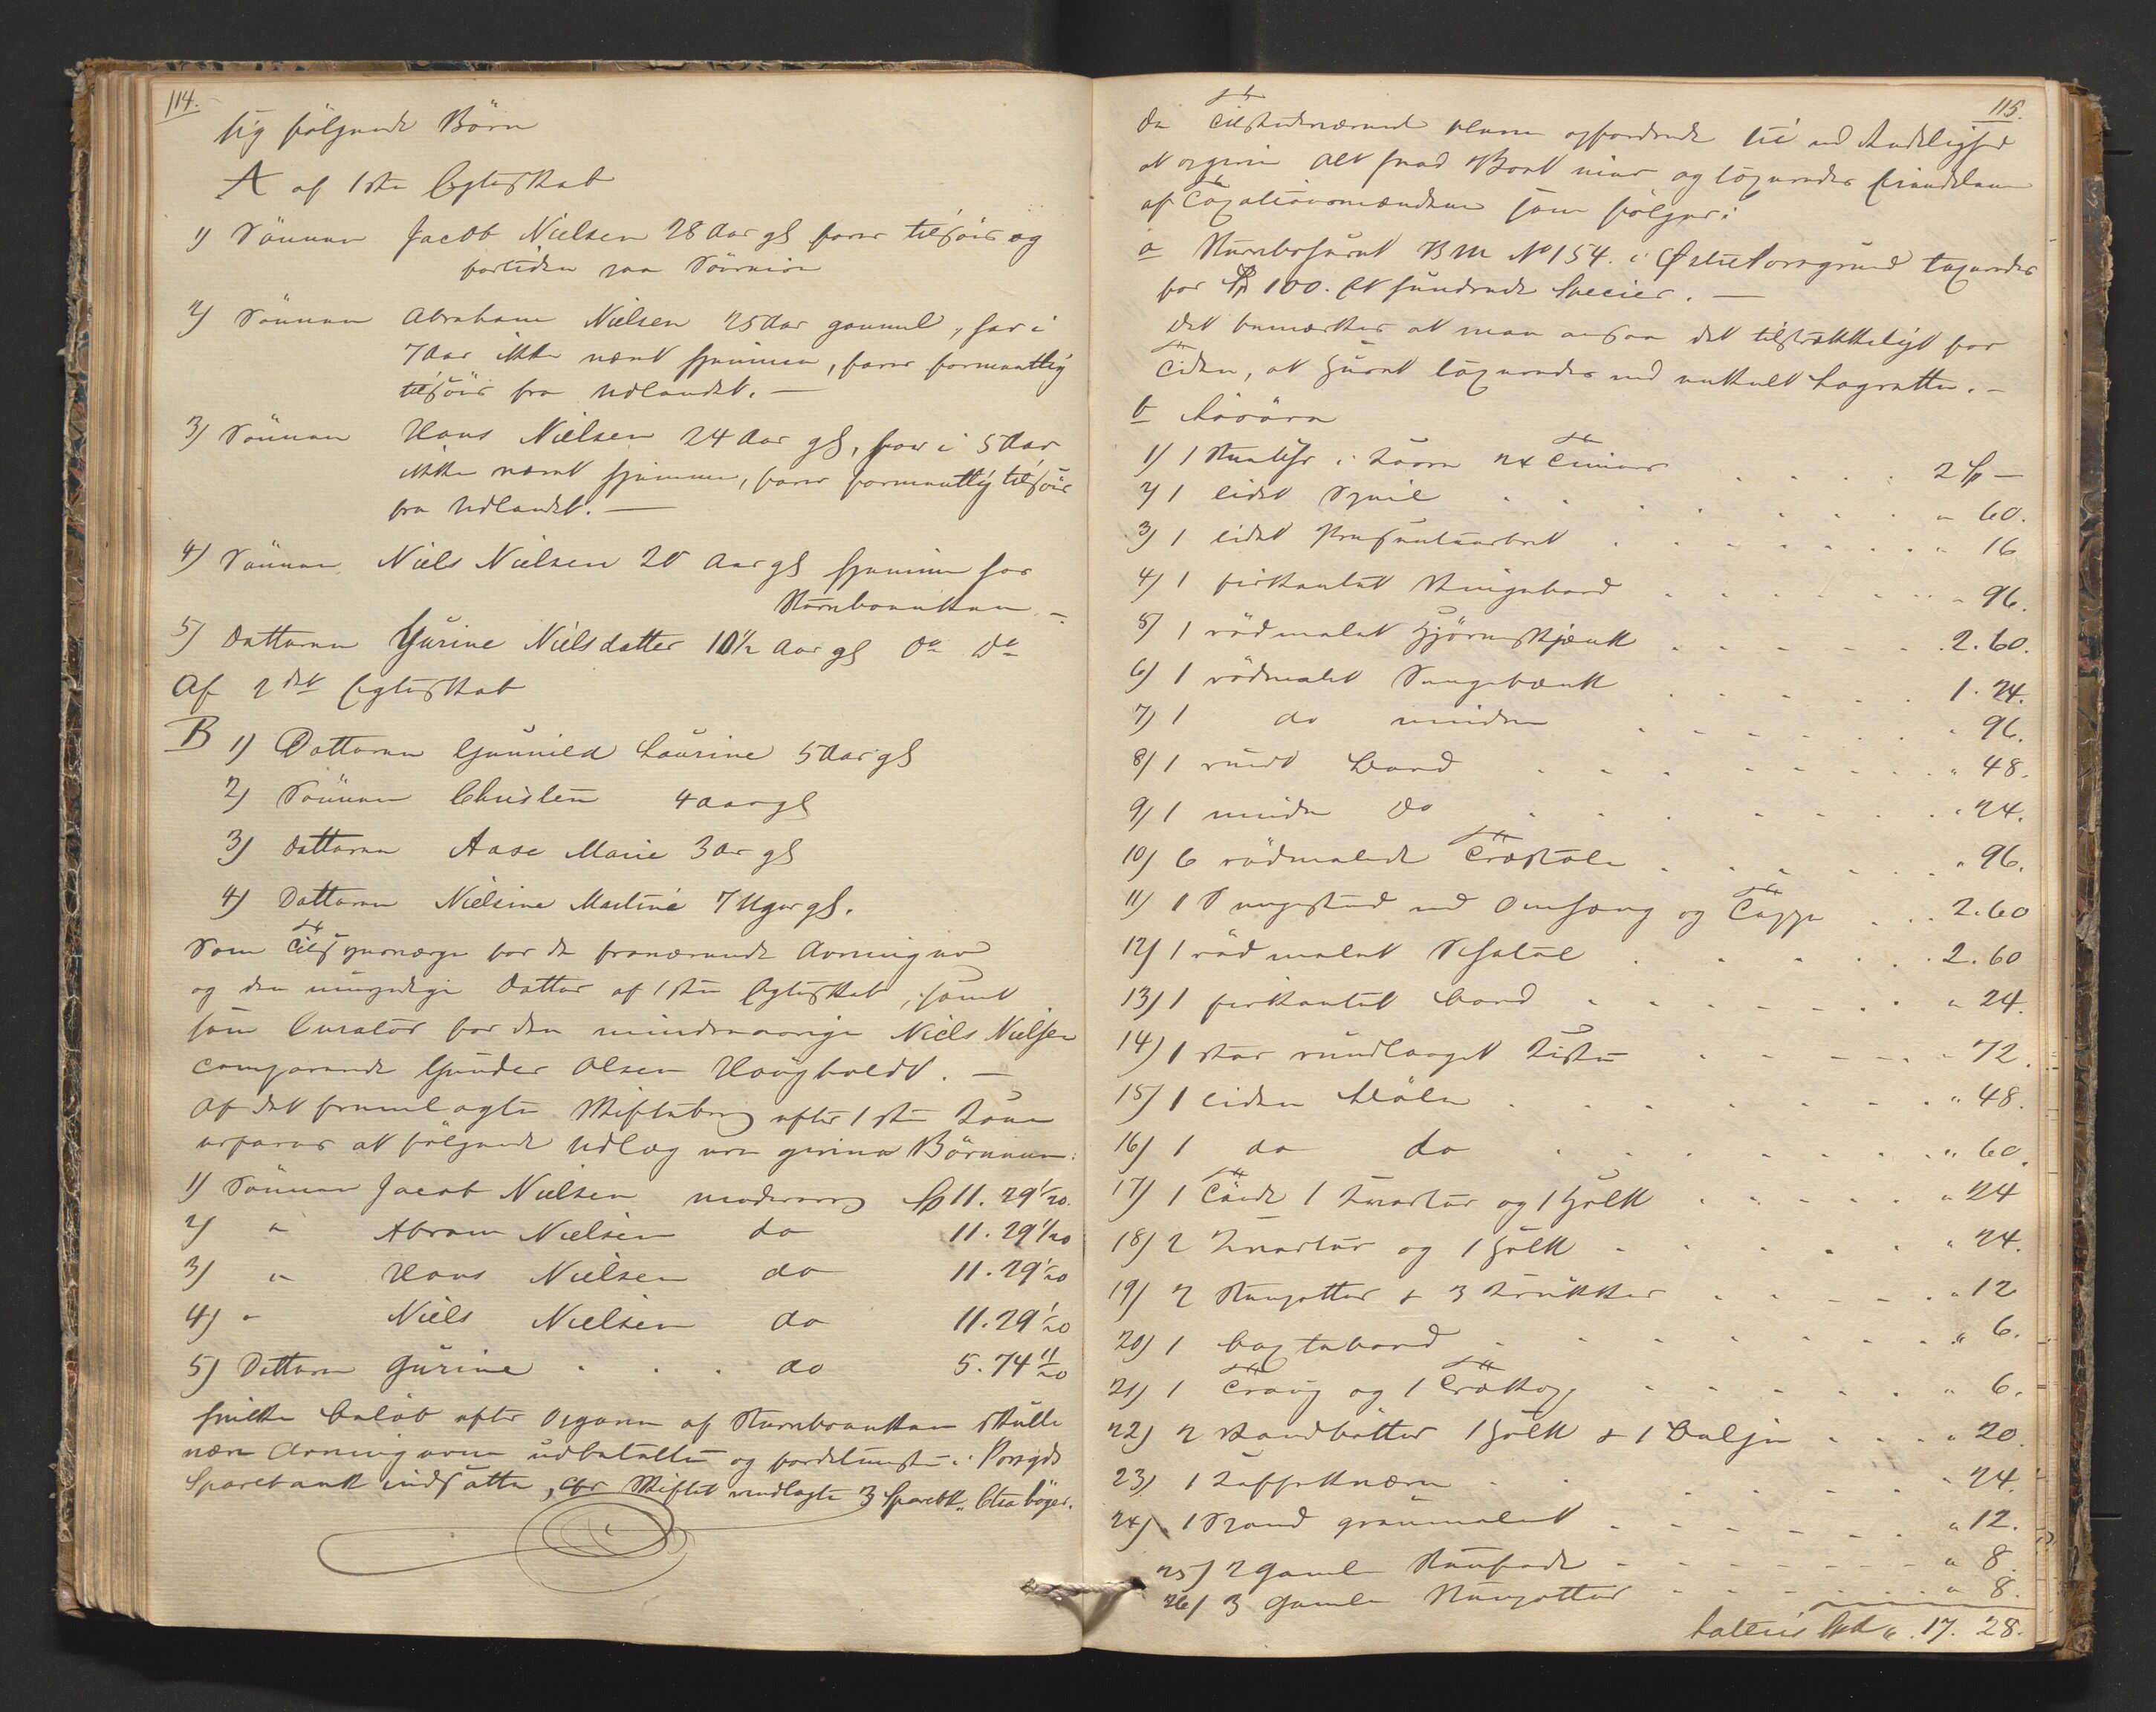 114.
sig følgende Börn
A af 1ste Egteskab
1) Sönnen Jacob Nielsen 28 Aar gl farer tilsøis og
fortiden paa Söreise
2) Sönnen Abraham Nielsen 25 Aar gammel, har i
7 Aar ikke været hjemme, farer formentlig
tilsöis fra Udlandet. —
3) Sönnen Hans Nielsen 24 Aar gl, har i 5 Aar
ikke været hjemme, farer formentlig tilsöis
fra Udlandet. —
4) Sönnen Niels Nielsen 20 Aar gl hjemme hos
Sterboenken —
5) Datteren Gurine Nielsdatter 10½ Aar gl do do
Af 2det Egteskab
B 1) Datteren Gunnild Laurine 5 Aar gl
2) Sönnen Christen 4 Aar gl
3) Datteren Aase Marie 3 Ar gl
4) Datteren Nielsine Martine 7 Uger gl.
Som Tilsynsværge for de fraværende Arvinger
og den umyndige Datter af 1ste Egteskab, samt
som Curator for den mindreaarige Niels Nielsen
comparerede Gunder Olsen Haugholdt. —
Af det fremlagte Skiftebrev efter 1ste Kone
erfares at følgende Udlæg ere givne Börnene:
1) Sönnen Jacob Nielsen mødrearv Sp 11. 29 1/20.
2) " Abram Nielsen do 11. 29 1/20
3) " Hans Nielsen do 11. 29 1/20
4) " Niels Nielsen do 11. 29 1/20
5) Datteren Gurine . . . do 5. 74 11/20
hvilke Beløb efter Opgave af Sterboenken skulle
være Arvingerne udbetalte og fordetmeste i Porsgds
Sparebank indsatte, cfr Skiftet vedlagte 3 Sparebk. Ctra böger.
115.
De Tilstedeværende bleve opfordrede til ved Andelighed
at opgive Alt hvad Boet eier og taxeredes eiendelene
af Taxationsmændene som følger:
a Sterbohuset B M No 154. i Østre Porsgrund taxeredes
for Sp 100. Et hundrede Specier. —
Det bemærkes at man ansaa det tilstrækkeligt for
Tiden, at Huset taxeredes ved enkelt Lagrette. —
b Løsøre
1) 1 Stueuhr i Form af Timer . . . . 2 Sp —
2) 1 lidet Speil . . . . " 60.
3) 1 lidet Præsenteerbret . . . . " 16
4) 1 firkantet Klingebord . . . . " 96.
5) 1 rødmalet Hjørneskjænk . . . . 2. 60.
6) 1 rødmalet Sengebænk . . . . 1. 24.
7) 1 do mindre . . . . " 96.
8) 1 rundt Bord . . . . " 48.
9) 1 mindre do . . . . " 24.
10) 6 rödmalede Træstole . . . . " 96.
11) 1 Sengested med Omhæng og Tæppe . . . 2. 60
12) 1 rød malet Schatol . . . . 2. 60
13) 1 firkantet Bord . . . . " 24.
14) 1 stor rundlaaget Kiste . . . . " 72.
15) 1 liden Möln . . . . " 48.
16) 1 do do . . . . " 60.
17) 1 Tönde 1 Kvarter og 1 Holk . . . . " 24
18) 2 Kvarter og 1 Holk . . . . " 24.
19) 2 Steengotter & 3 Krukker . . . . " 12
20) 1 Bagtebord . . . . " 6.
21) 1 Traug og 1 Trækop . . . . " 6.
22) 2 Vandbøtter 1 Holk & 1 Balje . . . . " 20.
23) 1 Kaffekværn . . . . " 24.
24) 1 Spand grönmalet . . . . " 12.
25) 2 Gamle Steenfade . . . . " 8.
26) 3 Gamle Steenpotter . . . . " 8.
Lateris Spd " . 17. 28.